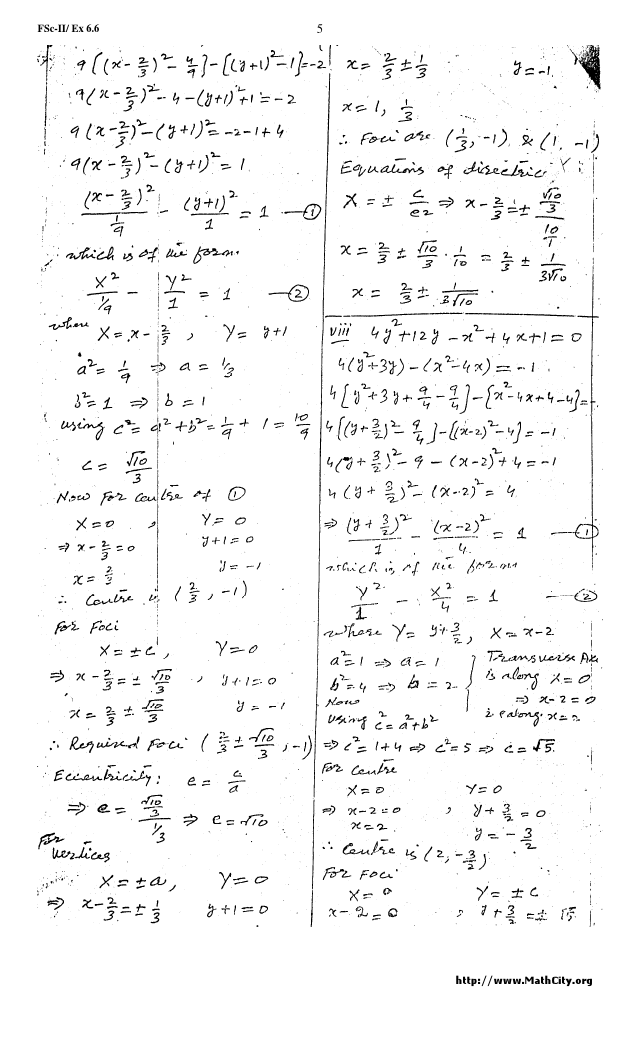 FSc-II/ Ex 6.6
5
9[(x-2/3)²-4/9]-[(y+1)²-1]=-2
9(x-2/3)²-4-(y+1)²+1=-2
9(x-2/3)²-(y+1)²=-2-1+4
9(x-2/3)²-(y+1)²=1
(x-2/3)²/(1/9) - (y+1)²/1 = 1 —①
which is of the form
X²/(1/9) - Y²/1 = 1 —②
where X=x-2/3 , Y= y+1
a²=1/9 ⇒ a=1/3
b²=1 ⇒ b=1
using c²=a²+b²=1/9+1=10/9
c=√10/3
Now For Centre of ①
X=0 , Y=0
⇒ x-2/3=0 y+1=0
x=2/3 y=-1
∴ Centre is (2/3, -1)
For Foci
X=±c, Y=0
⇒ x-2/3=±√10/3 , y+1=0
x=2/3±√10/3 y=-1
∴ Required Foci (2/3±√10/3, -1)
Eccentricity: e=c/a
⇒ e=(√10/3)/(1/3) ⇒ e=√10
For
Vertices
X=±a, Y=0
⇒ x-2/3=±1/3 y+1=0
x=2/3±1/3 y=-1
x=1, 1/3
∴ Foci are (1/3, -1) & (1, -1)
Equations of directric
X=±c/e2 ⇒ x-2/3=±(√10/3)/(10/1)
x=2/3±√10/3·1/10=2/3±1/3√10
x=2/3±1/3√10
viii 4y²+12y-x²+4x+1=0
4(y²+3y)-(x²-4x)=-1
4[y²+3y+9/4-9/4]-[x²-4x+4-4]=-
4[(y+3/2)²-9/4]-[(x-2)²-4]=-1
4(y+3/2)²-9-(x-2)²+4=-1
4(y+3/2)²-(x-2)²=4
⇒ (y+3/2)²/1 - (x-2)²/4 = 1 —①
which is of the form
Y²/1 - X²/4 = 1 —②
where Y=y+3/2, X=x-2
a²=1 ⇒ a=1
b²=4 ⇒ b=2
Now
using c²=a²+b²
Transverse Axi
is along X=0
⇒ x-2=0
i.e along x=2
⇒ c²=1+4 ⇒ c²=5 ⇒ c=√5
For Centre
X=0 Y=0
⇒ x-2=0 , y+3/2=0
x=2 y=-3/2
∴ Centre is (2, -3/2)
For Foci
X=0 Y=±c
x-2=0 , y+3/2=±√5
http://www.MathCity.org